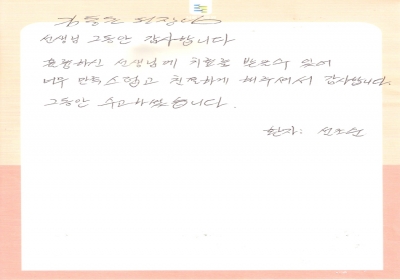 선생님 그동안 감사합니다
훌륭하신 선생님께 치료를 받을수 있어
너무 만족스럽고 친절하게 해주셔서 감사합니다.
그동안 수고하셨습니다.
환자: